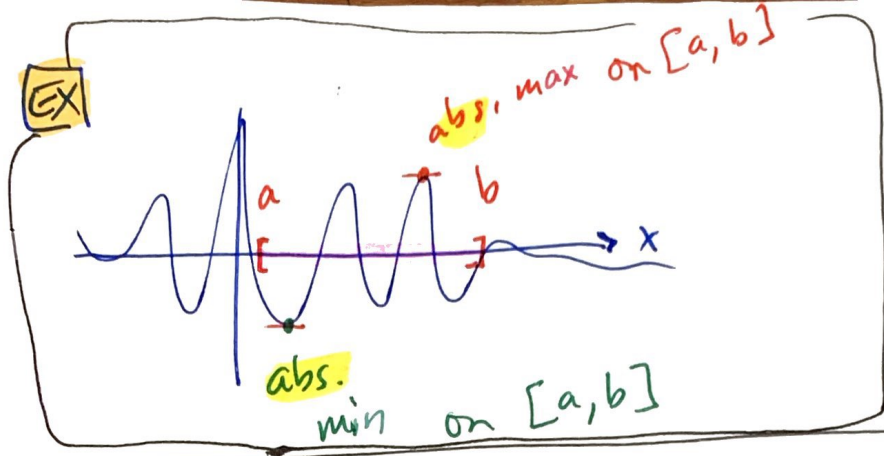 EX
abs. max on [a, b]
a
b
[
]
x
abs.
min on [a, b]